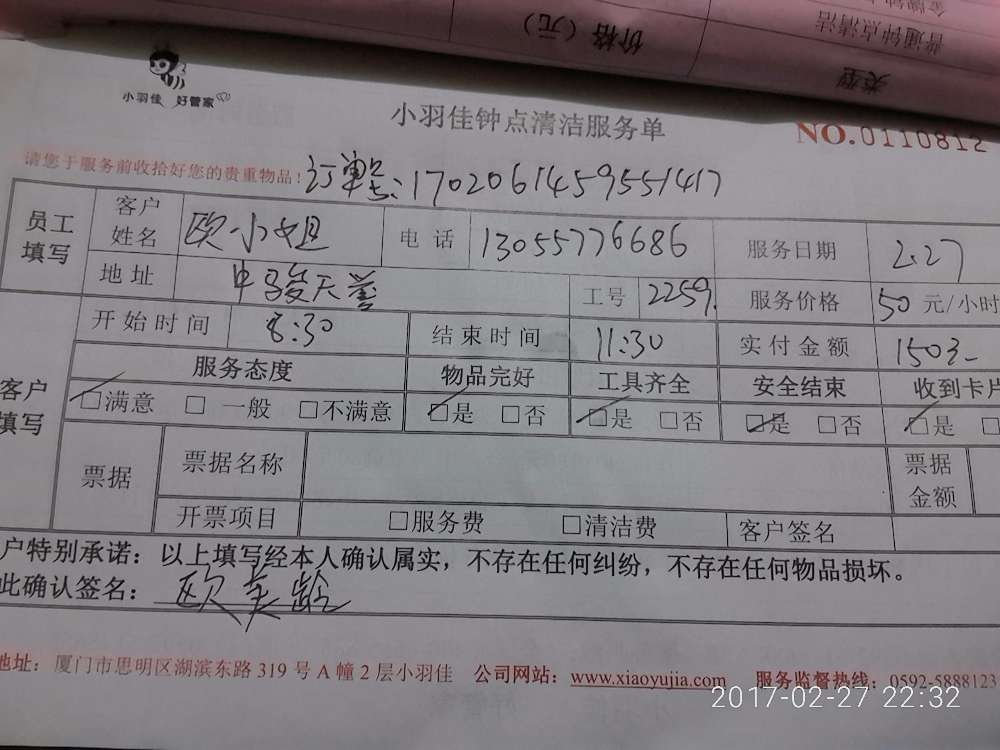 价格（元）
类型
普通钟点清洁
小羽佳 好管家
小羽佳钟点清洁服务单
NO.0110812
请您于服务前收拾好您的贵重物品！
订单号:1702061459551417
员工填写
客户姓名 欧小姐 电话 13055776686 服务日期 2.27
地址 中骏天誉 工号 2259. 服务价格 50元/小时
客户填写
开始时间 8:30 结束时间 11:30 实付金额 150
服务态度 物品完好 工具齐全 安全结束 收到卡片
□满意 □一般 □不满意 □是 □否 □是 □否 □是 □否 □是 □
票据 票据名称 票据金额
开票项目 □服务费 □清洁费 客户签名
户特别承诺：以上填写经本人确认属实，不存在任何纠纷，不存在任何物品损坏。
此确认签名：欧美龄
地址：厦门市思明区湖滨东路 319 号 A 幢 2 层小羽佳 公司网站：www.xiaoyujia.com 服务监督热线：0592-5888123
2017-02-27 22:32